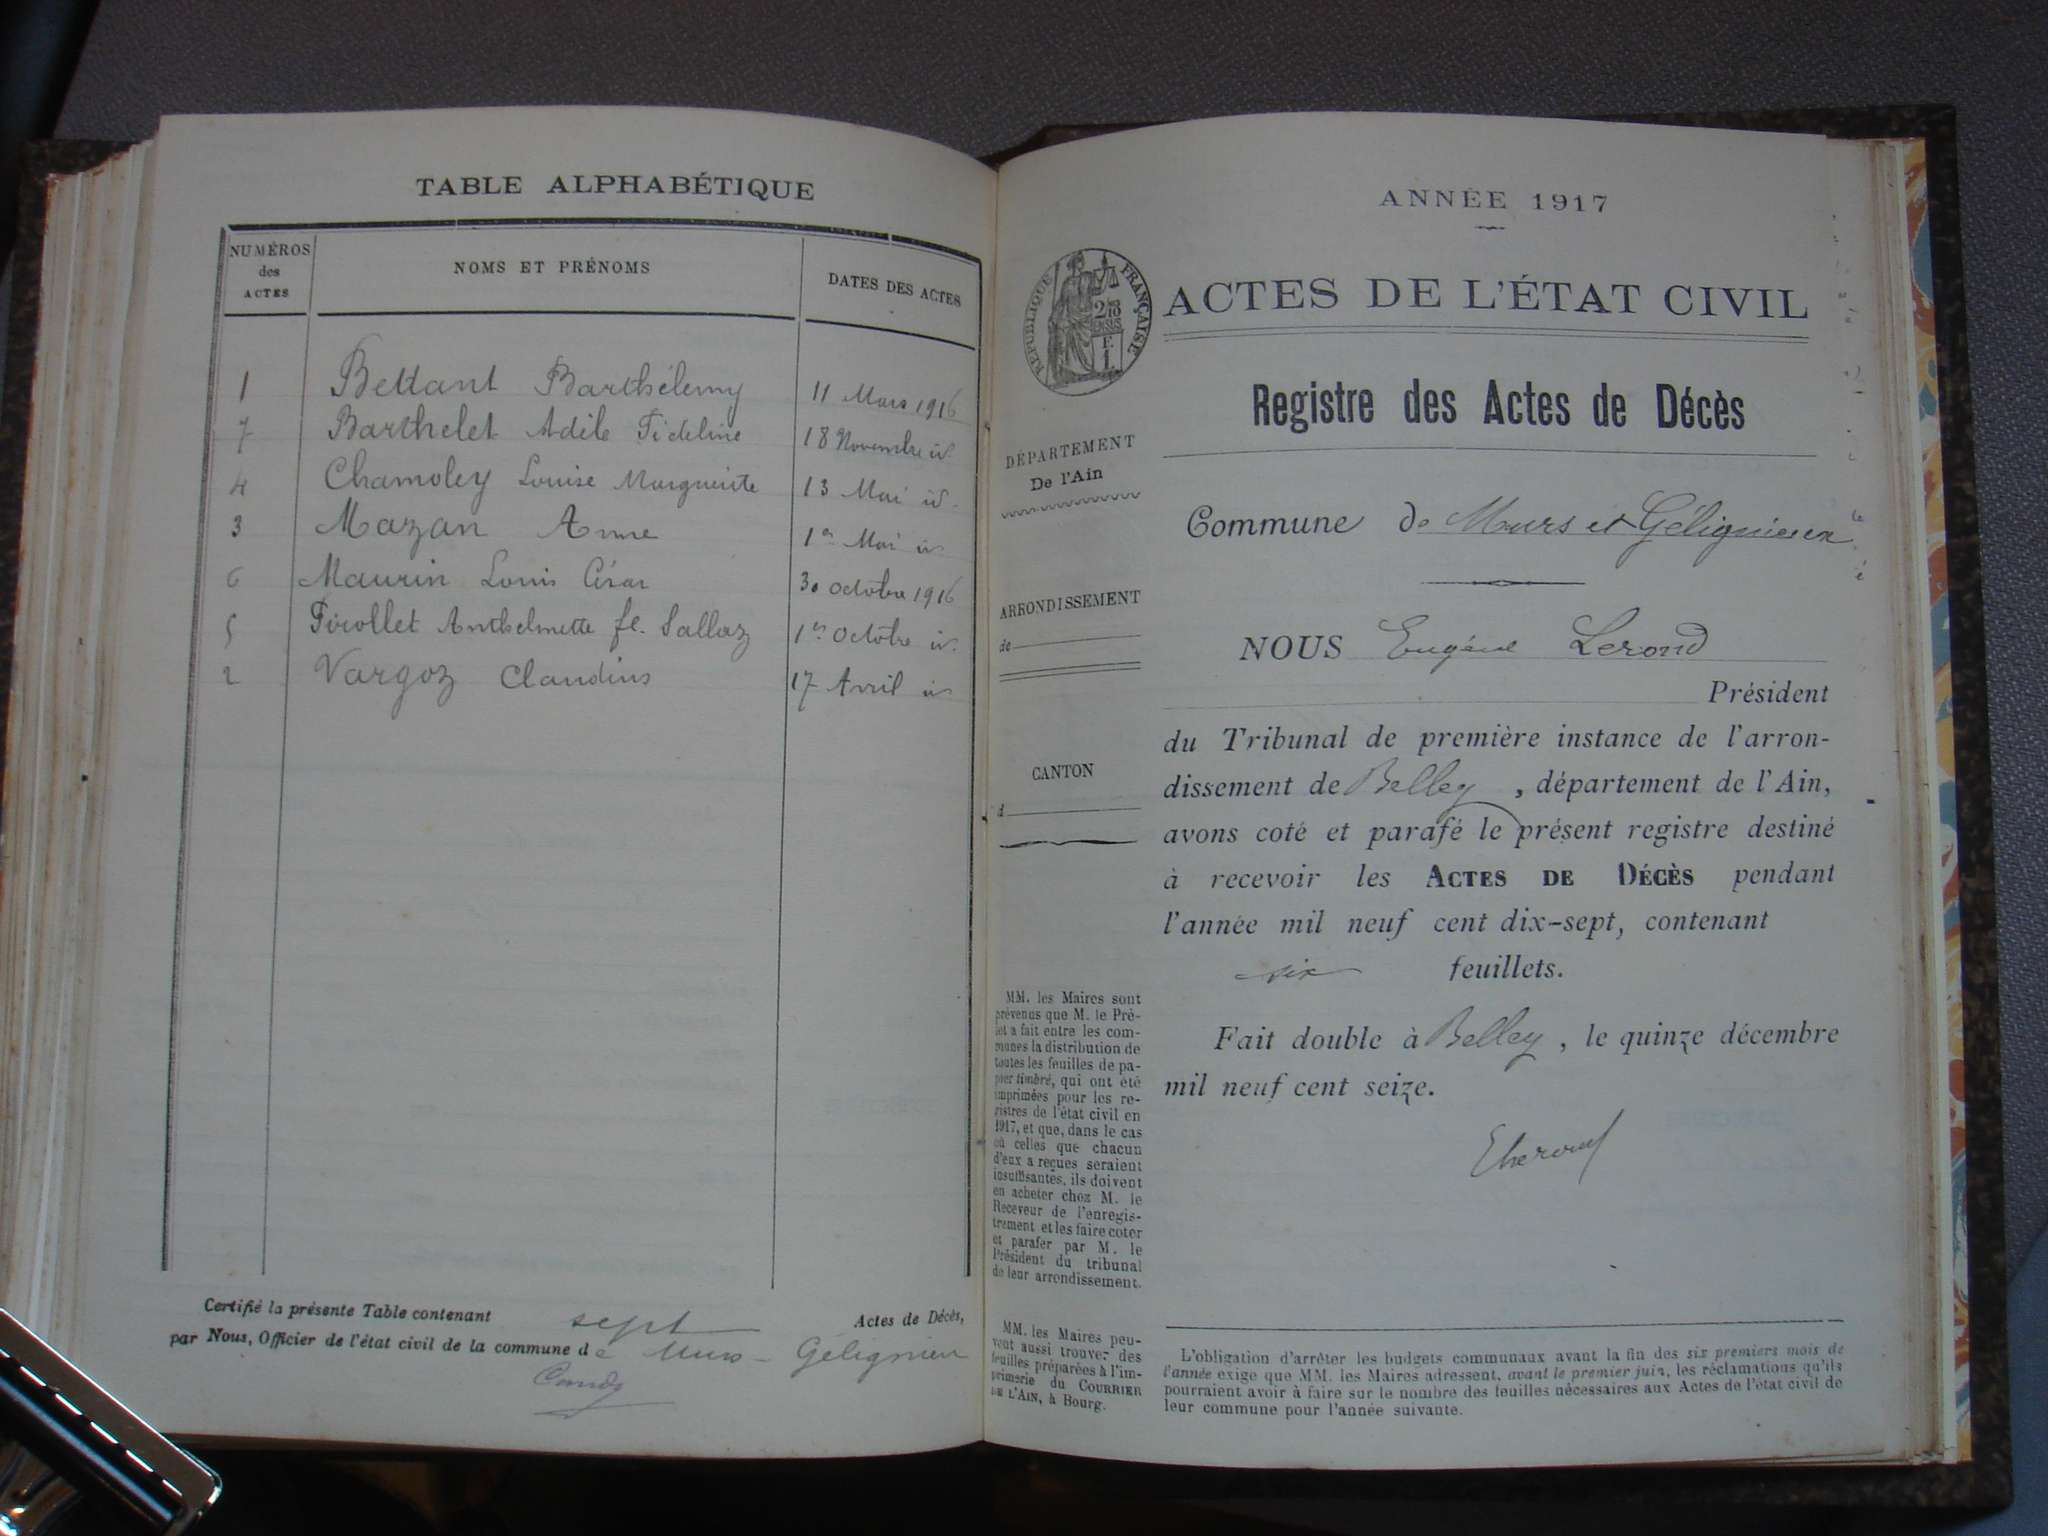 TABLE ALPHABÉTIQUE
NUMÉROS
des
ACTES
NOMS ET PRÉNOMS
DATES DES ACTES
1 Bettant Barthélemy 11 Mars 1916
7 Barthelet Adèle Fideline 18 Novembre id.
4 Chamoley Louise Marguerite 13 Mai id.
3 Mazan Anne 1er Mai id
6 Maurin Louis César 30 Octobre 1916
5 Anthelmette fe. Sallaz 1er Octobre id.
2 Vargoz Claudius 17 Avril id
Certifié la présente Table contenant sept Actes de Décès,
par Nous, Officier de l'état civil de la commune de Murs-Gélignieux
ANNÉE 1917
RÉPUBLIQUE FRANÇAISE
ACTES DE L'ÉTAT CIVIL
Registre des Actes de Décès
DÉPARTEMENT
De l'Ain
Commune de Murs et Gélignieux
ARRONDISSEMENT
de
CANTON
d
NOUS Eugène Lerond
Président
du Tribunal de première instance de l'arron-
dissement de Belley, département de l'Ain,
avons coté et parafé le présent registre destiné
à recevoir les ACTES DE DÉCÈS pendant
l'année mil neuf cent dix-sept, contenant
six feuillets.
Fait double à Belley, le quinze décembre
mil neuf cent seize.
ELerond
MM. les Maires sont
prévenus que M. le Pré-
fet a fait entre les com-
munes la distribution de
toutes les feuilles de pa-
pier timbré, qui ont été
imprimées pour les re-
gistres de l'état civil en
1917, et que, dans le cas
où celles que chacun
d'eux a reçues seraient
insuffisantes, ils doivent
en acheter chez M. le
Receveur de l'enregis-
trement et les faire coter
et parafer par M. le
Président du tribunal
de leur arrondissement.
MM. les Maires peu-
vent aussi trouver des
feuilles préparées à l'im-
primerie du COURRIER
DE L'AIN, à Bourg.
L'obligation d'arrêter les budgets communaux avant la fin des six premiers mois de
l'année exige que MM. les Maires adressent, avant le premier juin, les réclamations qu'ils
pourraient avoir à faire sur le nombre des feuilles nécessaires aux Actes de l'état civil de
leur commune pour l'année suivante.